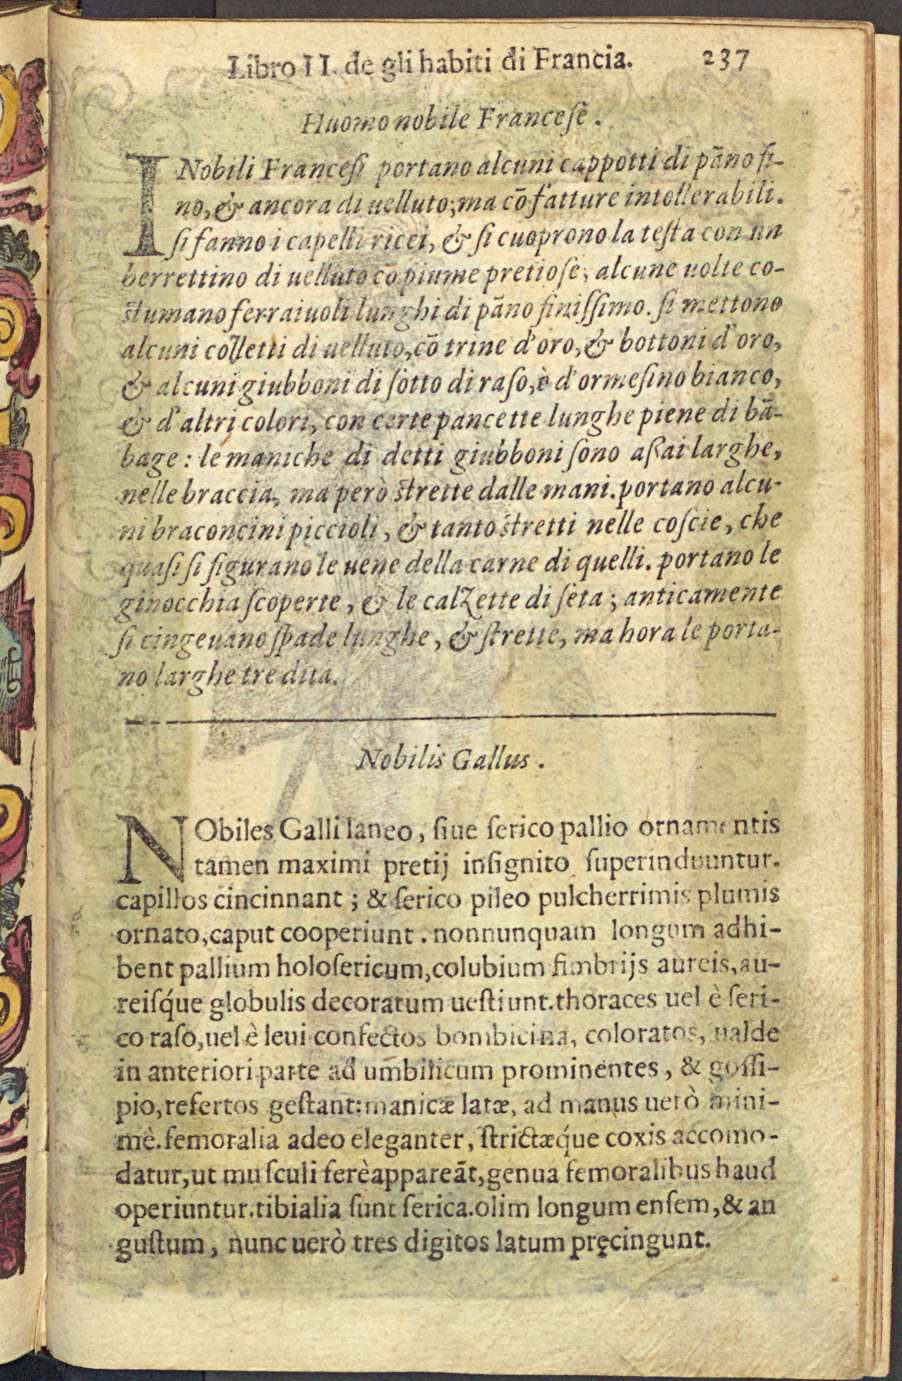 Libro II. de gli habiti di Francia. 237
Huomo nobile Francese.
I Nobili Francesi portano alcuni cappotti di pāno fi-
no, & ancora di uelluto; ma cō fatture intollerabili.
si fanno i capelli ricci, & si cuoprono la testa con un
berrettino di uelluto co piume pretiose; alcune uolte co-
stumano ferraiuoli lunghi di pāno finissimo. si mettono
alcuni colletti di uelluto, cō trine d'oro, & bottoni d'oro,
& alcuni giubboni di sotto di raso, ò d'ormesino bianco,
& d'altri colori, con certe pancette lunghe piene di bā-
bage: le maniche di detti giubboni sono assai larghe,
nelle braccia, ma però strette dalle mani. portano alcu-
ni braconcini piccioli, & tanto stretti nelle coscie, che
quasi si figurano le uene della carne di quelli. portano le
ginocchia scoperte, & le calzette di seta; anticamente
si cingeuano spade lunghe, & strette, ma hora le porta-
no larghe tre dita.
Nobilis Gallus.
NObiles Galli laneo, siue serico pallio ornamentis
tamen maximi pretij insignito superinduuntur.
capillos cincinnant; & serico pileo pulcherrimis plumis
ornato, caput cooperiunt. nonnunquam longum adhi-
bent pallium holosericum, colubium fimbrijs aureis, au-
reisq́ue globulis decoratum uestiunt. thoraces uel è seri-
co raso, uel è leui confectos bombicina, coloratos, ualde
in anteriori parte ad umbilicum prominentes, & gossi-
pio, refertos gestant: manicæ latæ, ad manus uerò mini-
mè. femoralia adeo eleganter, strictæq́ue coxis accomo-
datur, ut musculi ferè appareāt, genua femoralibus haud
operiuntur. tibialia sunt serica. olim longum ensem, & an
gustum, nunc uerò tres digitos latum pręcingunt.